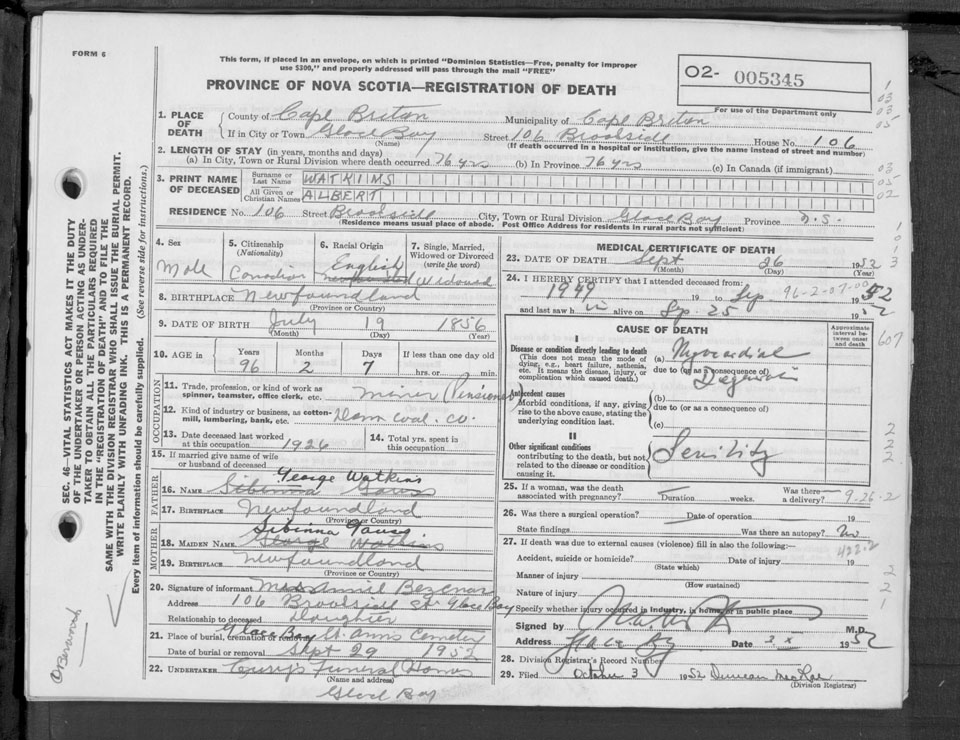 FORM 6
This form, if placed in an envelope, on which is printed "Dominion Statistics—Free, penalty for improper
use $300," and properly addressed will pass through the mail "FREE"
O2- 005345
For use of the Department only
PROVINCE OF NOVA SCOTIA—REGISTRATION OF DEATH
1. PLACE OF DEATH
County of Cape Briton Municipality of Cape Briton
If in City or Town Glace Bay Street 106 Brookside House No. 106
(Name) (If death occurred in a hospital or institution, give the name instead of street and number)
2. LENGTH OF STAY (in years, months and days)
(a) In City, Town or Rural Division where death occurred 76 yrs (b) In Province 76 yrs (c) In Canada (if immigrant)
3. PRINT NAME OF DECEASED
Surname or Last Name WATKINS
All Given or Christian Names ALBERT
RESIDENCE No. 106 Street Brookside City, Town or Rural Division Glace Bay Province N.S.
(Residence means usual place of abode. Post Office Address for residents in rural parts not sufficient)
4. Sex
Male
5. Citizenship
(Nationality)
Canadian
6. Racial Origin
English
7. Single, Married, Widowed or Divorced
(write the word)
Widowed
8. BIRTHPLACE Newfoundland
(Province or Country)
9. DATE OF BIRTH July 19 1856
(Month) (Day) (Year)
10. AGE in Years Months Days If less than one day old
96 2 7 hrs. or min.
OCCUPATION
11. Trade, profession, or kind of work as
spinner, teamster, office clerk, etc. Miner (Pensioned)
12. Kind of industry or business, as cotton-
mill, lumbering, bank, etc. Dom Coal. Co.
13. Date deceased last worked
at this occupation 1926
14. Total yrs. spent in
this occupation
15. If married give name of wife
or husband of deceased
FATHER
George Watkins
16. NAME Sibinna
17. BIRTHPLACE Newfoundland
(Province or Country)
MOTHER
Sibinna
18. MAIDEN NAME George Watkins
19. BIRTHPLACE Newfoundland
(Province or Country)
20. Signature of informant Annie
Address 106 Brookside St Glace Bay
Relationship to deceased Daughter
21. Place of burial, cremation or removal Glace Bay St. Anns Cemetery
Date of burial or removal Sept 29 1952
22. UNDERTAKER Currys Funeral Home
(Name and address)
Glace Bay
MEDICAL CERTIFICATE OF DEATH
23. DATE OF DEATH Sept 26 1952
(Month) (Day) (Year)
24. I HEREBY CERTIFY that I attended deceased from:
1949 19 to Sep 1952
96-2-07-00
and last saw h im alive on Sep. 25 1952
CAUSE OF DEATH
Approximate interval between onset and death
I
Disease or condition directly leading to death
(This does not mean the mode of
dying, e.g., heart failure, asthenia,
etc. It means the disease, injury, or
complication which caused death.)
(a) Myocardial
due to (or as a consequence of)
Antecedent causes
Morbid conditions, if any, giving
rise to the above cause, stating the
underlying condition last.
(b)
due to (or as a consequence of)
(c)
II
Other significant conditions
contributing to the death, but not
related to the disease or condition
causing it.
Senility
25. If a woman, was the death
associated with pregnancy? Duration weeks. Was there
a delivery? 9-26-2
26. Was there a surgical operation? Date of operation 19
State findings Was there an autopsy? No
27. If death was due to external causes (violence) fill in also the following:—
422-2
Accident, suicide or homicide? Date of injury 19
(State which)
Manner of injury
(How sustained)
Nature of injury
Specify whether injury occurred in industry, in home, or in public place
Signed by M.D.
Address Glace Bay Date 1952
28. Division Registrar's Record Number
29. Filed October 3 1952 Duncan MacRae
(Division Registrar)
SEC. 46—VITAL STATISTICS ACT MAKES IT THE DUTY
OF THE UNDERTAKER OR PERSON ACTING AS UNDER-
TAKER TO OBTAIN ALL THE PARTICULARS REQUIRED
IN THE "REGISTRATION OF DEATH" AND TO FILE THE
SAME WITH THE DIVISION REGISTRAR WHO SHALL ISSUE THE BURIAL PERMIT.
WRITE PLAINLY WITH UNFADING INK. THIS IS A PERMANENT RECORD.
Every item of information should be carefully supplied. (See reverse side for instructions.)
1
03
03
05
03
05
02
1
0
1
3
607
2
2
2
2
2
1